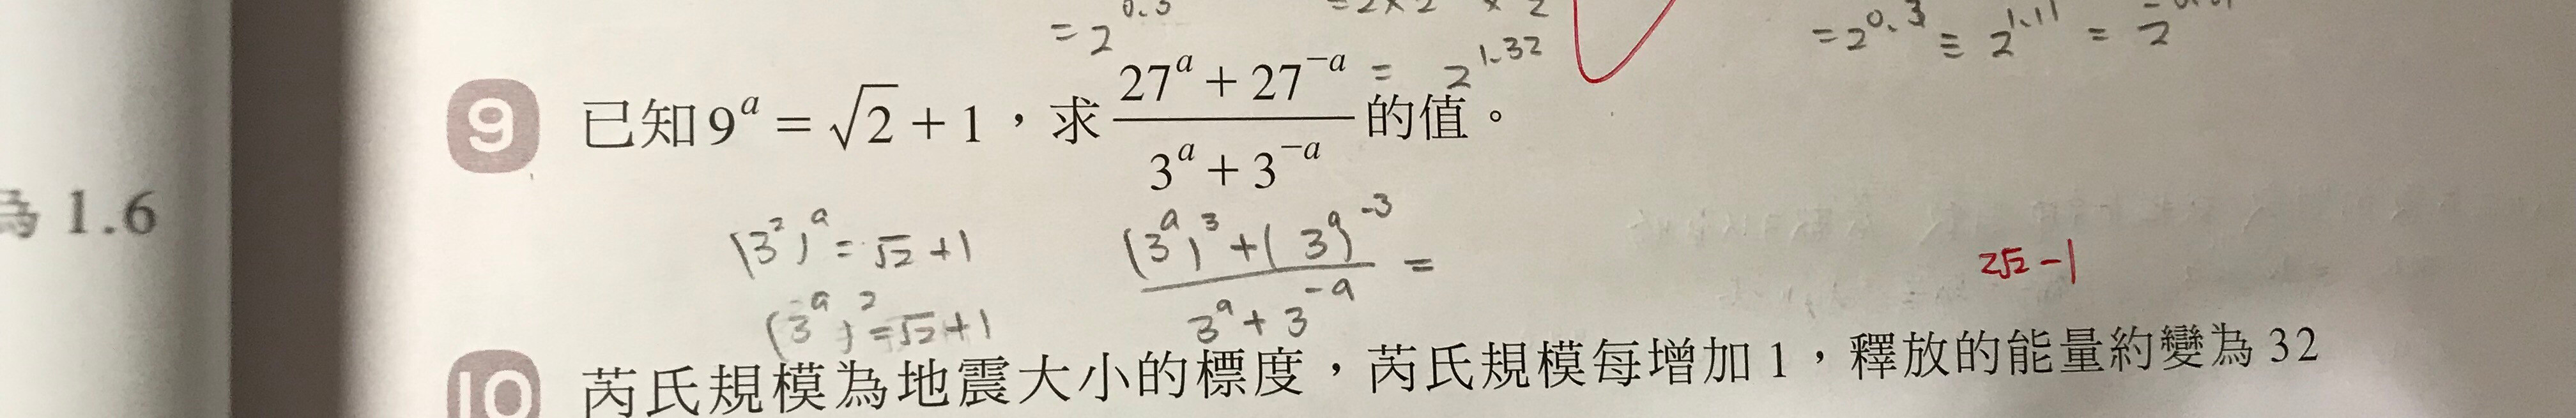 = 2^0.3
= 2^1.32
= 2^0.3 = 2^1.11 =
9 已知 9^a = √2 + 1，求 (27^a + 27^-a)/(3^a + 3^-a) 的值。
為 1.6
(3^2)^a = √2 + 1
((3^a)^3 + (3^a)^-3)/(3^a + 3^-a) =
2√2 - 1
(3^a)^2 = √2 + 1
10 芮氏規模為地震大小的標度，芮氏規模每增加 1，釋放的能量約變為 32